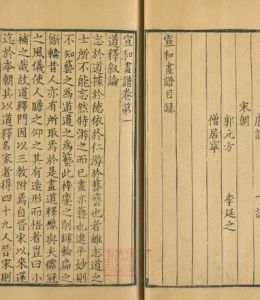 宋朝
郭元方 李延之
僧居寧
宣和畫譜目錄
宣和畫譜卷第一
道釋敘論
志於道據於德依於仁游於藝藝也者雖志道之
士所不能忘然特游之而已畫亦藝也進乎妙則
不知藝之為道道之為藝此梓慶之削鐻輪扁之
斲輪昔人亦有所取焉於是畫道釋像與夫儒冠
之風儀使人瞻之仰之其有造形而悟者豈曰小
補之哉故道釋門因以三教附焉自晉宋以來還
迄於本朝其以道釋名家者得四十九人晉宋則